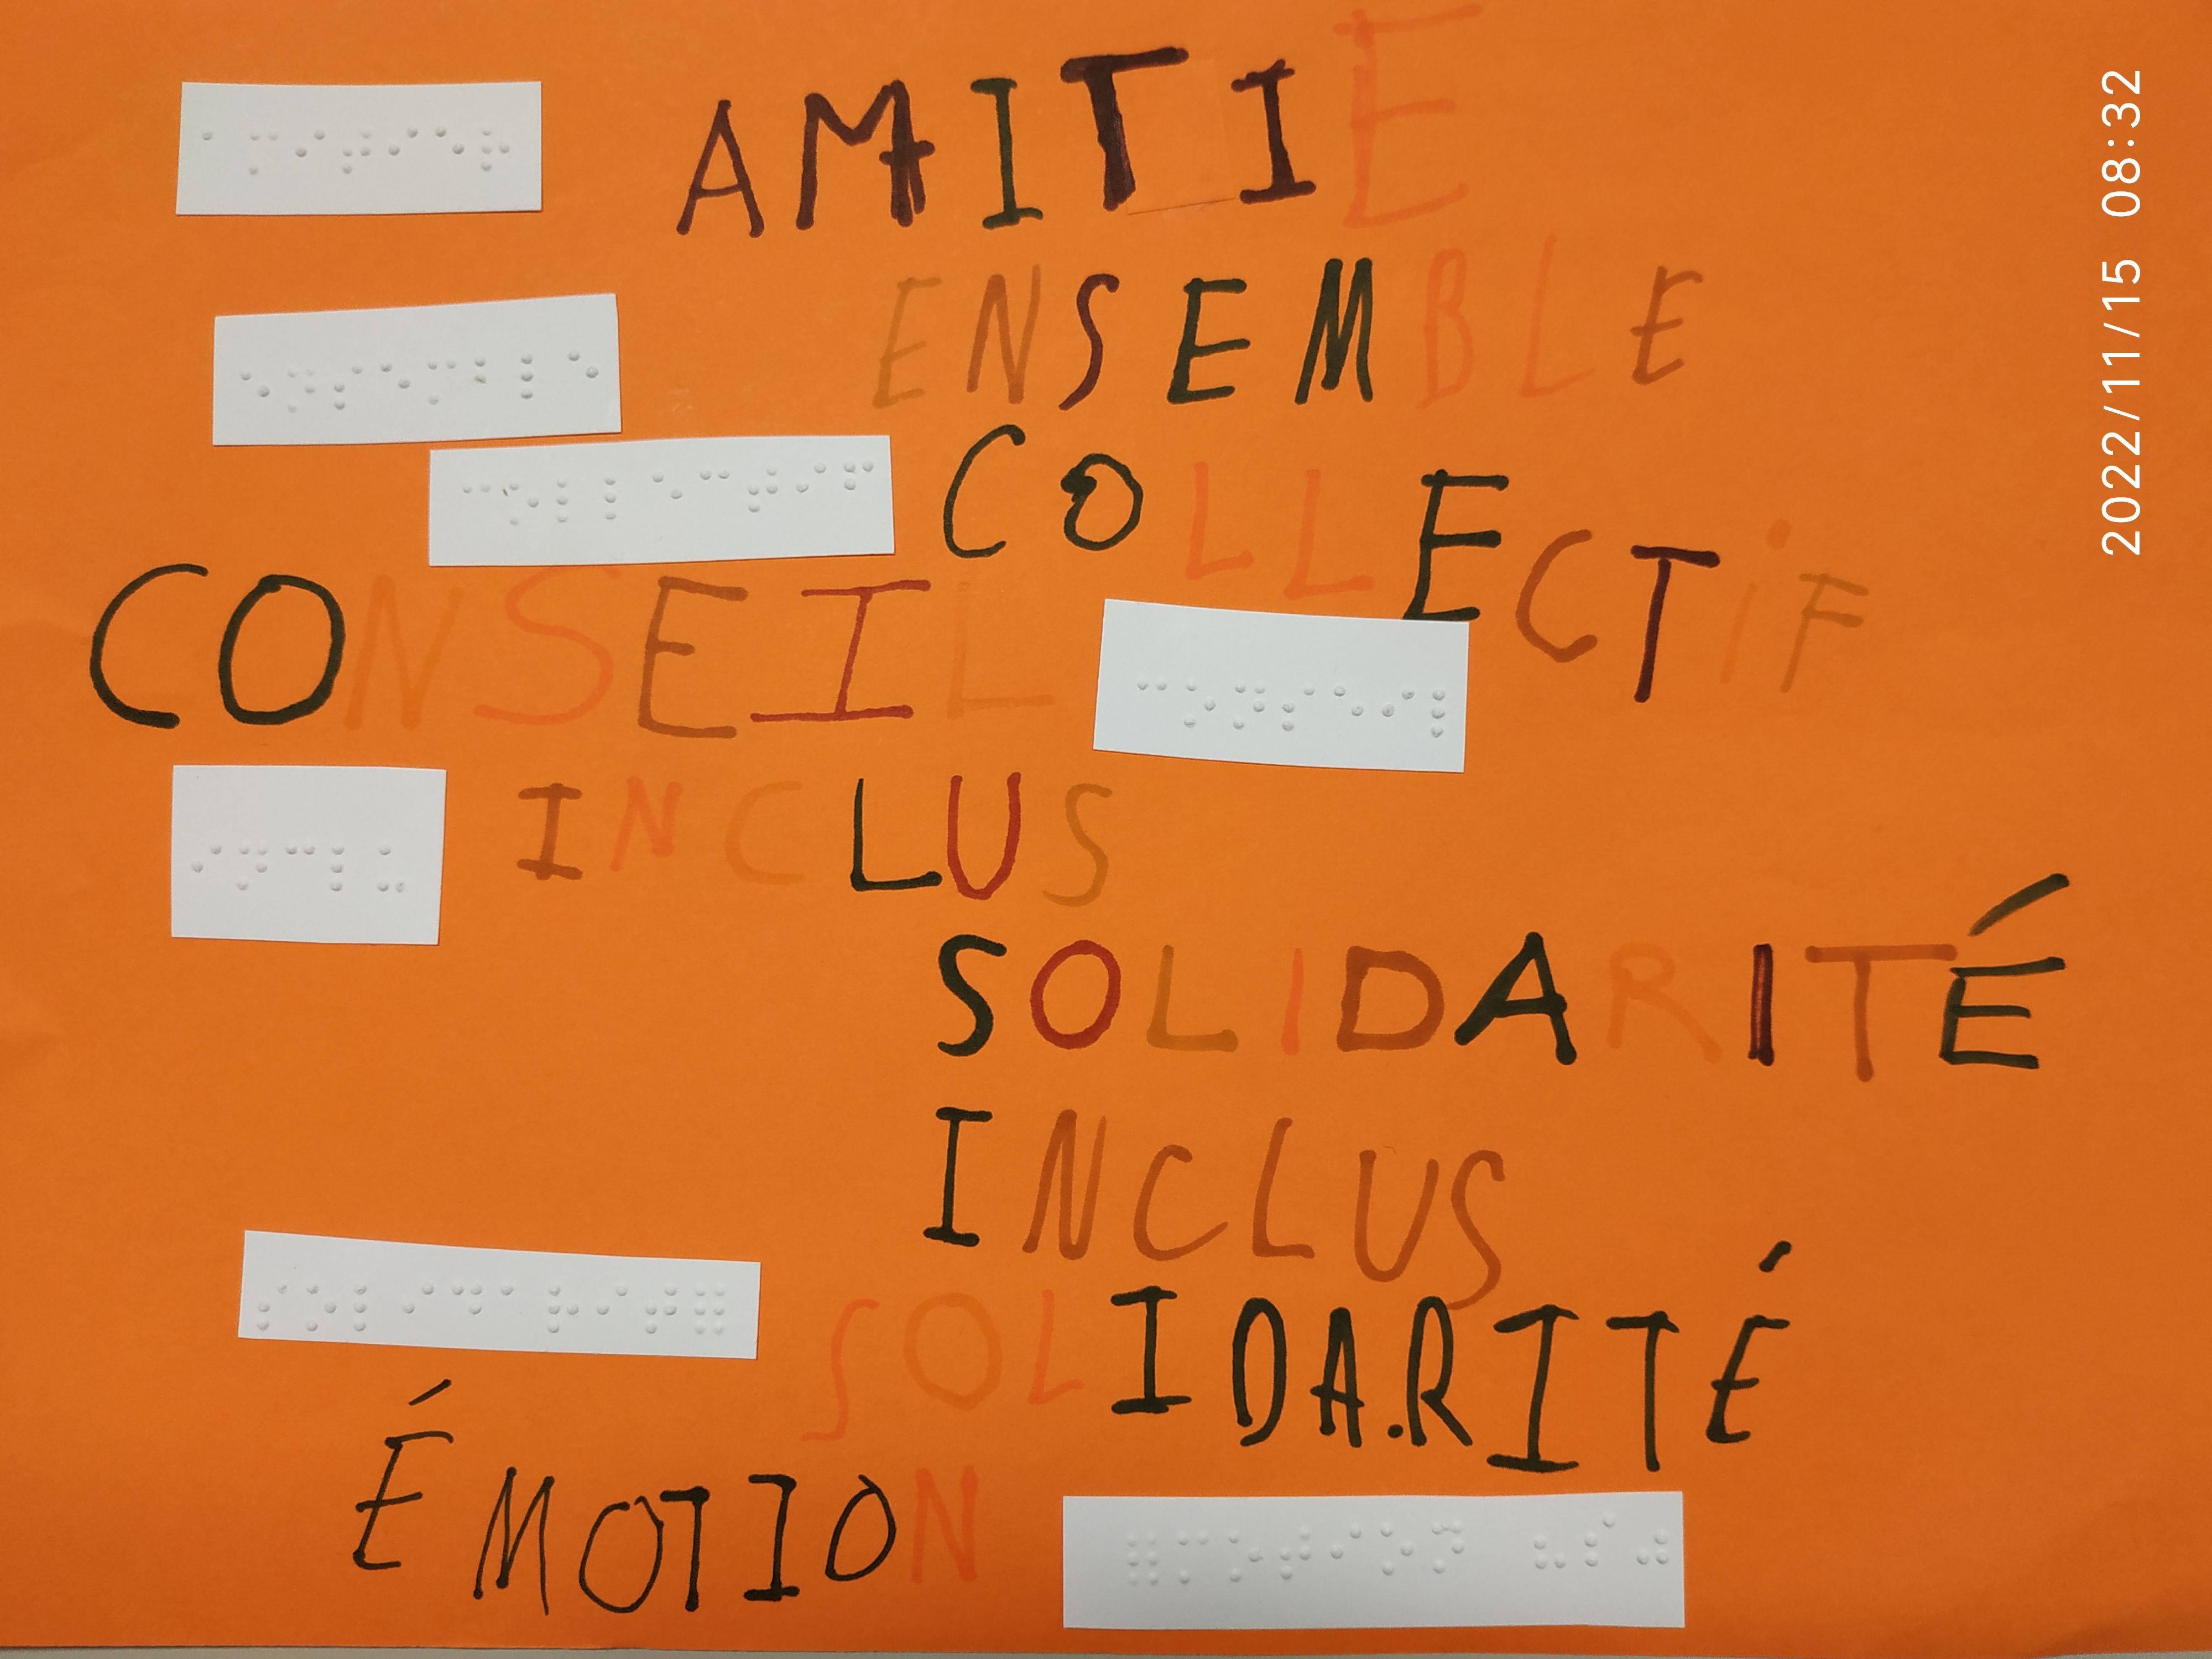 AMITIE
ENSEMBLE
COLLECTiF
CONSEIL
INCLUS
SOLIDARITÉ
INCLUS
SOLIDA.RITÉ
ÉMOTION
2022/11/15 08:32